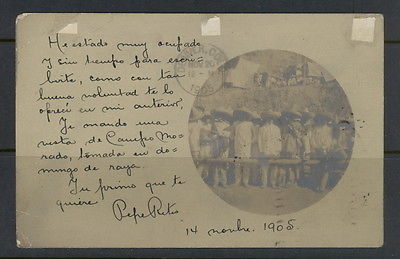 He estado muy ocupado
y sin tiempo para escri-
birte, como con tan
buena voluntad te lo
ofrecí en mi anterior.
Te mando una
vista de Campo Mo-
rado, tomada en do-
mingo de raya
Tu primo que te
quiere
Pepe
14 novbre. 1905.